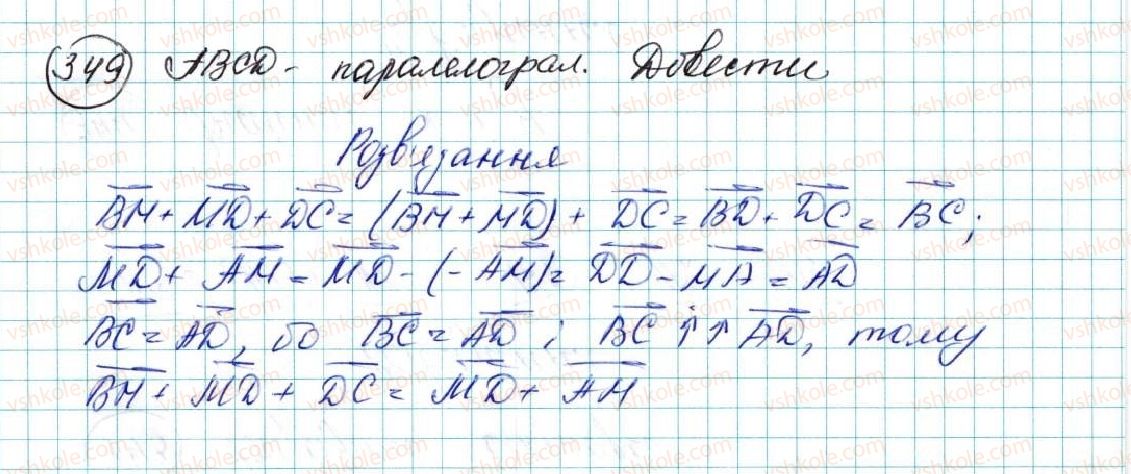 349 ABCD - паралелограм. Довести
Розв'язання
BM + MD + DC = (BM + MD) + DC = BD + DC = BC;
MD + AM = MD - (-AM) = DD - MA = AD
BC = AD, бо BC = AD і BC ↑↑ AD, тому
BM + MD + DC = MD + AM
vshkole.com